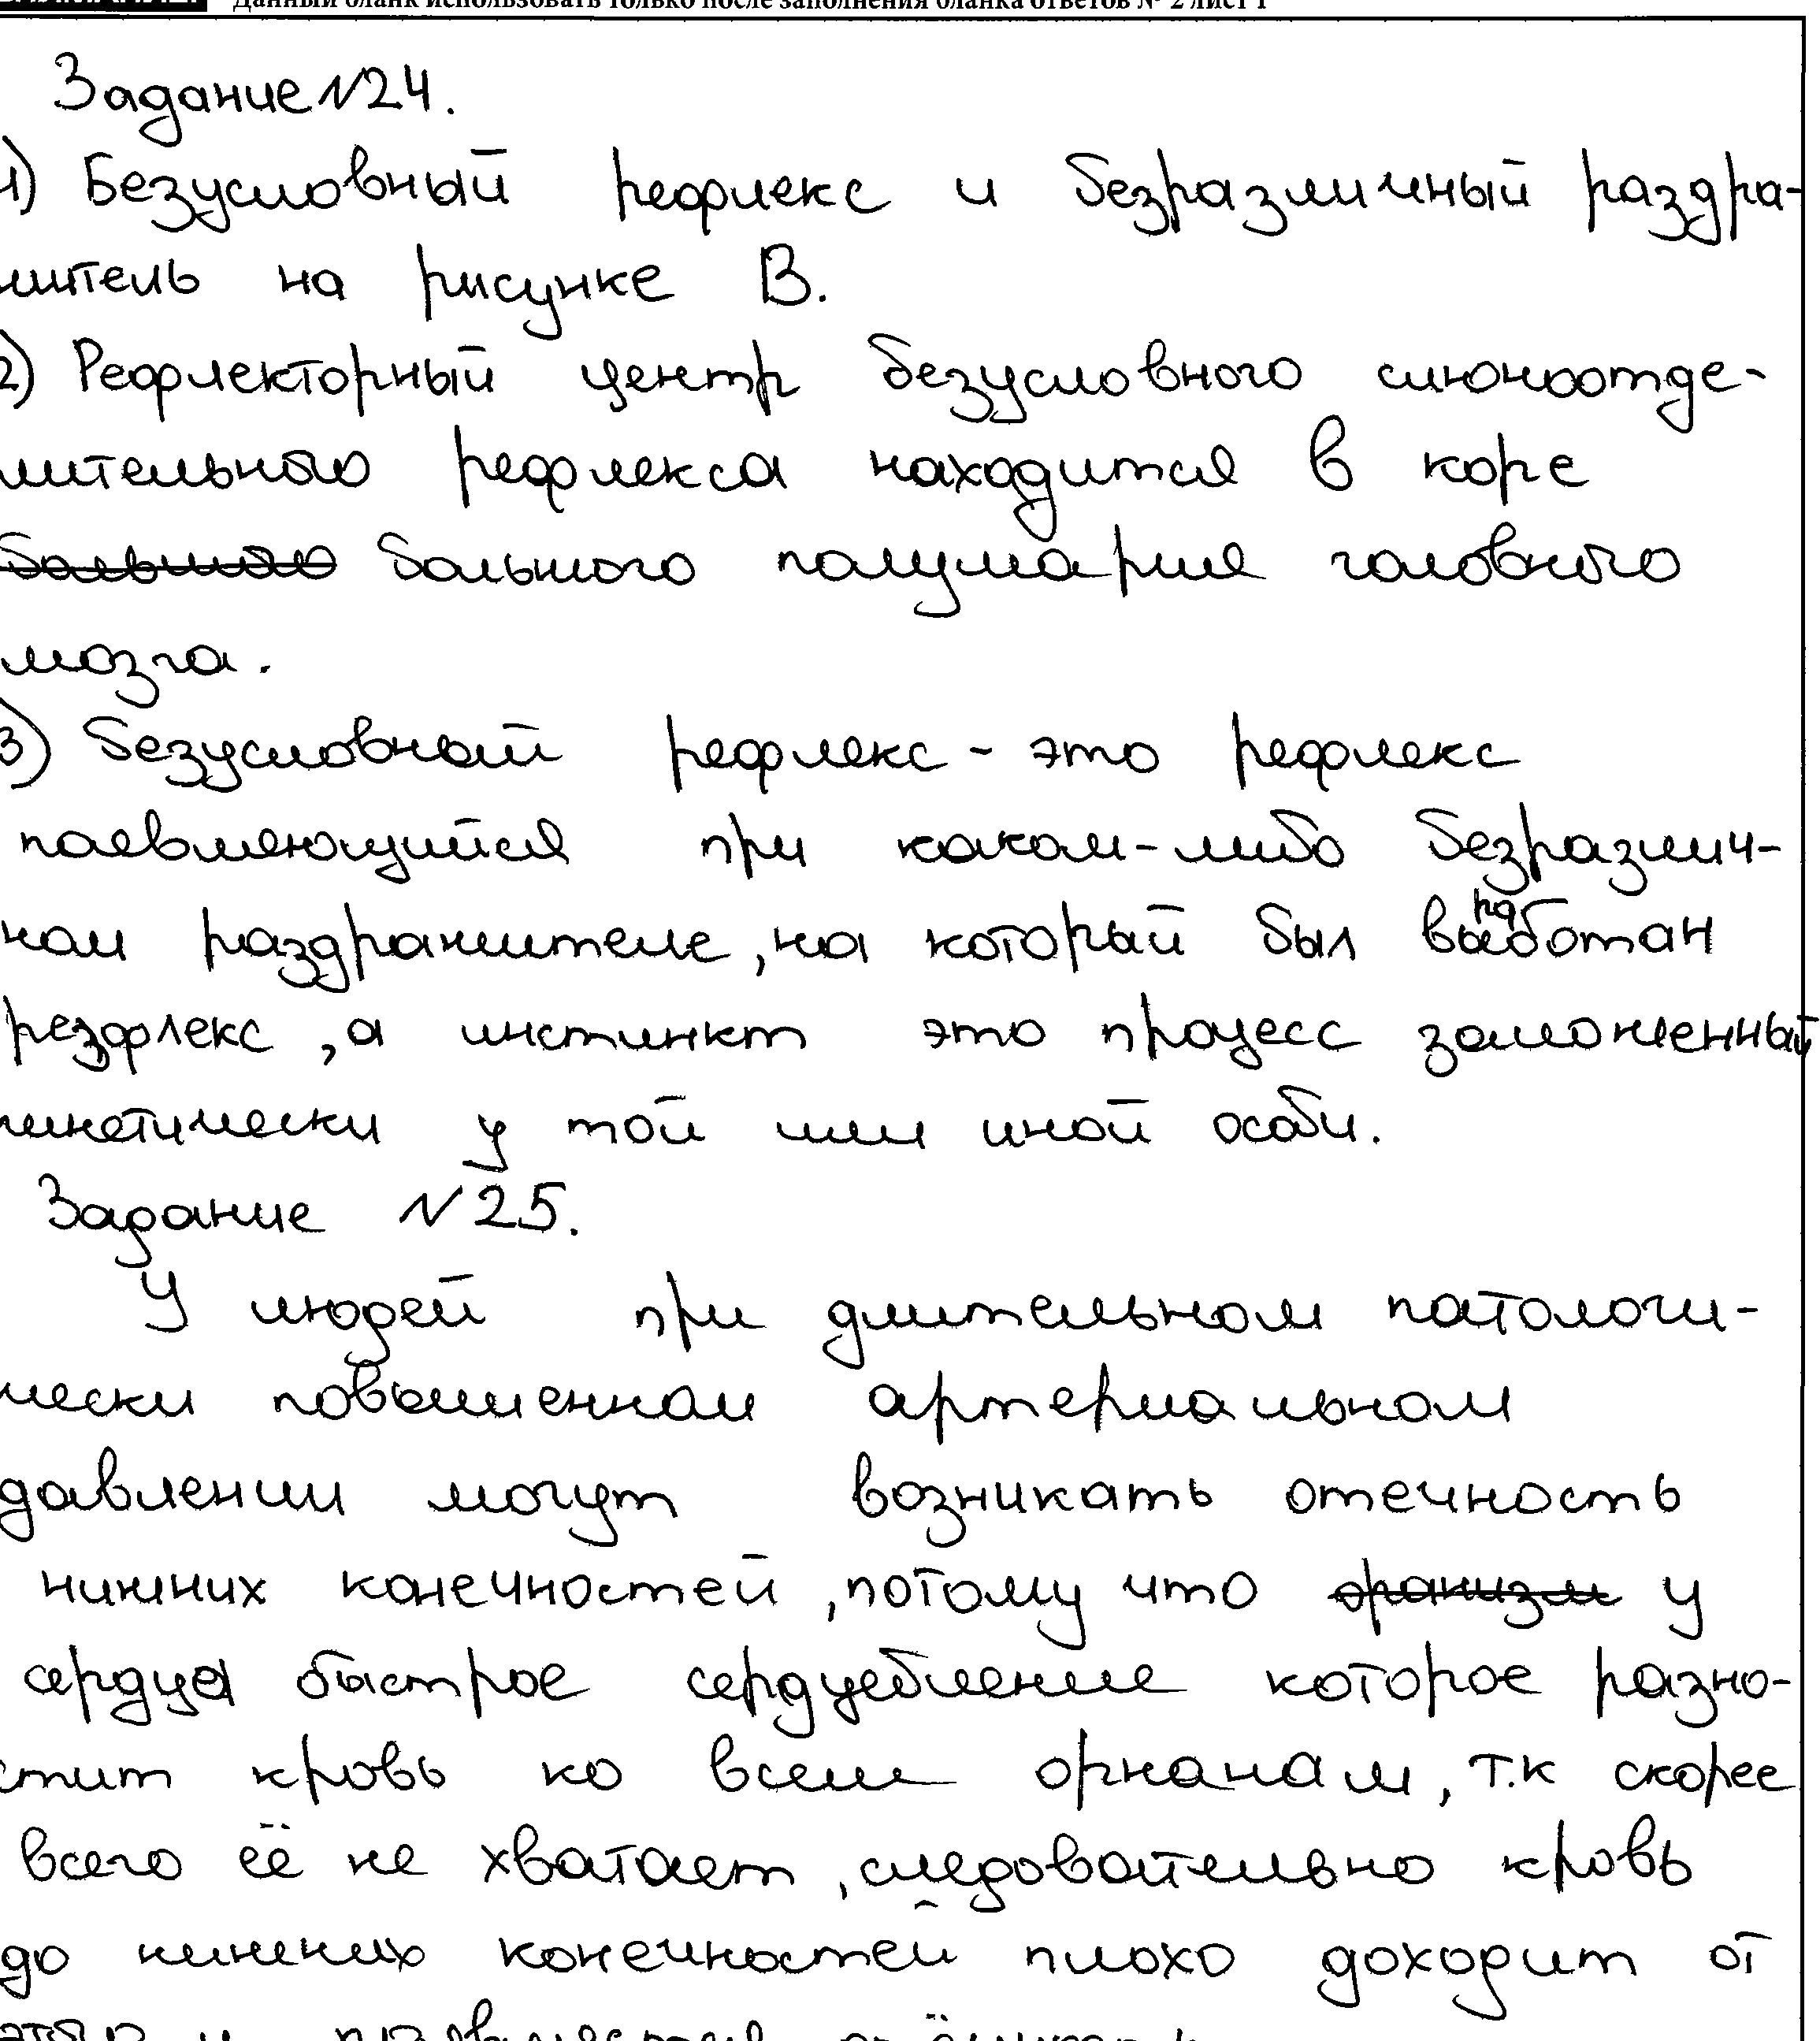 Данный бланк использовать только после заполнения бланка ответов № 2 лист 1
Задание №24.
1) Безусловный рефлекс и безразличный раздра-
житель на рисунке В.
2) Рефлекторный центр безусловного слюноотде-
лительного рефлекса находится в коре
большого большого полушария головного
мозга.
3) Безусловный рефлекс - это рефлекс
паевляющийся при каком-либо безразлич-
ном раздражителе, на который был выработан
резфлекс, а инстинкт это процесс заложенный
гинетически у той или иной особи.
Задание №25.
У людей при длительном патологи-
чески повышенном артериальном
давлении могут возникать отечность
нижних конечностей, потому что организм у
сердца быстрое сердцебление которое разно-
стит кровь ко всем органам, т.к скорее
всего её не хватает, следовательно кровь
до нижних конечностей плохо доходит от
этого и